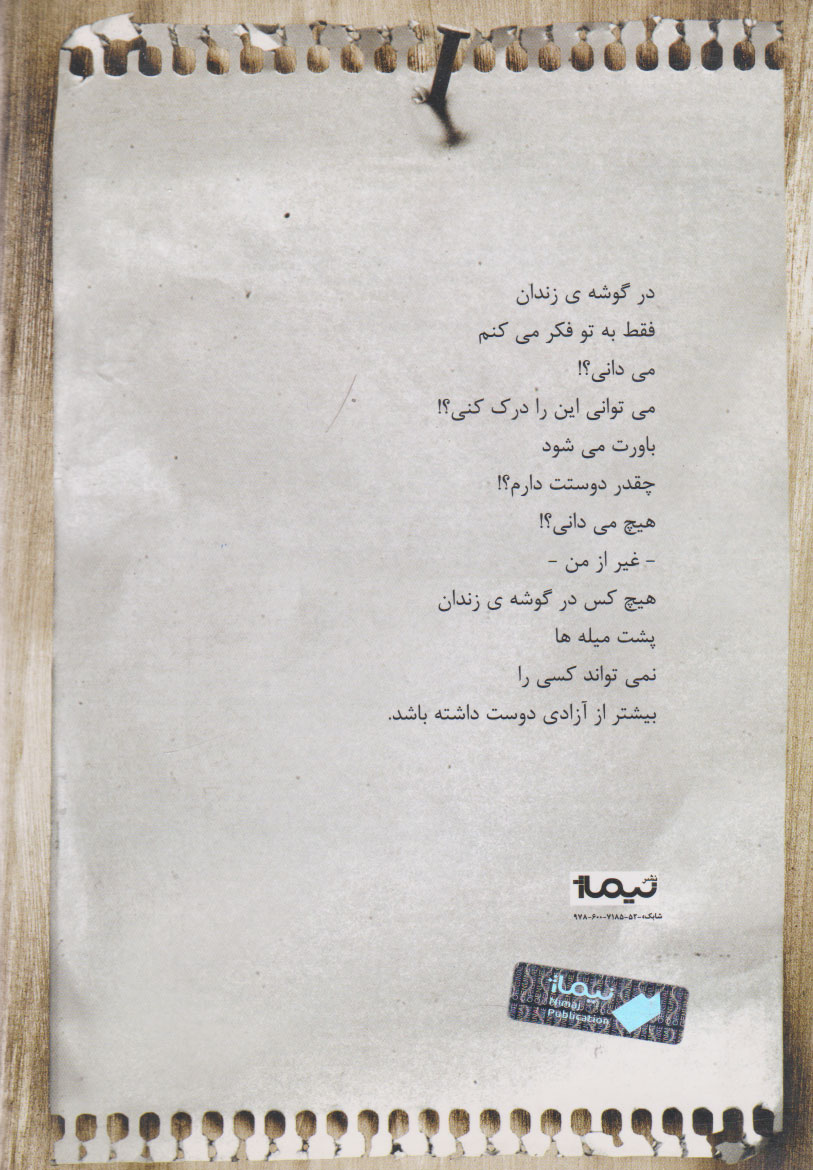 در گوشه ی زندان
فقط به تو فکر می کنم
می دانی؟!
می توانی این را درک کنی؟!
باورت می شود
چقدر دوستت دارم؟!
هیچ می دانی؟!
- غیر از من -
هیچ کس در گوشه ی زندان
پشت میله ها
نمی تواند کسی را
بیشتر از آزادی دوست داشته باشد.
نشر
نیماژ
شابک: ۹۷۸-۶۰۰-۷۱۸۵-۵۲-۰
نیماژ
Nimaj
Publication